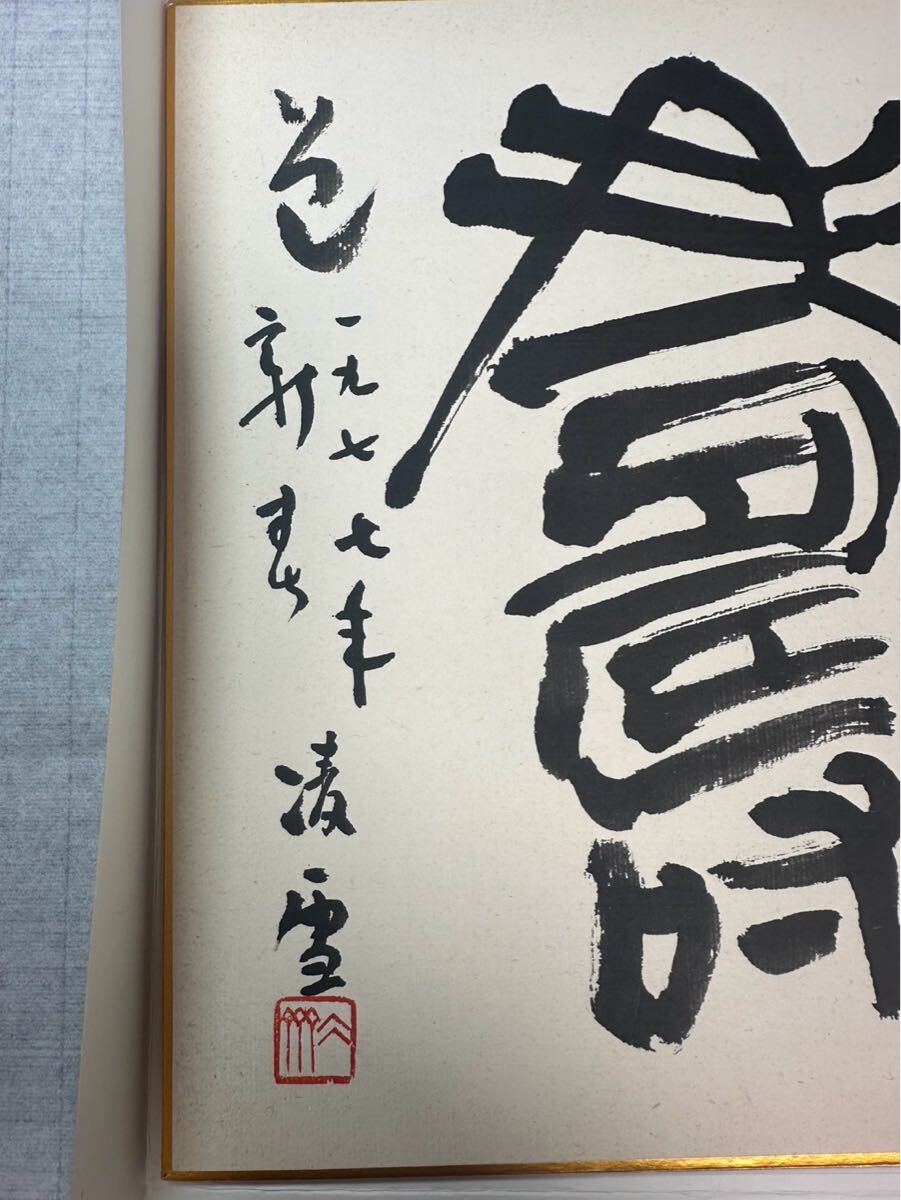 壽
一九七七年
新春
凌雪